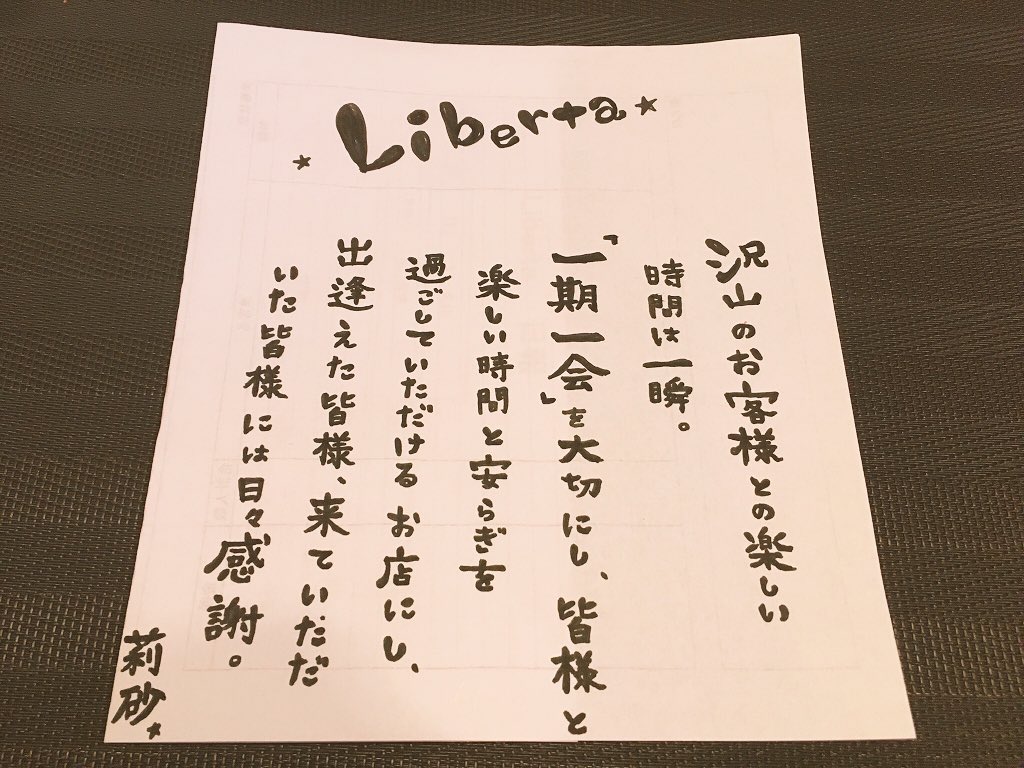 Liberta
沢山のお客様との楽しい
時間は一瞬。
「一期一会」を大切にし、皆様と
楽しい時間と安らぎを
過ごしていただけるお店にし、
出逢えた皆様、来ていただ
いた皆様には日々感謝。
莉砂